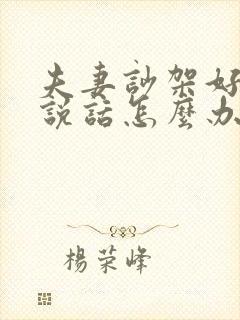 夫妻訟架好
說話怎麼办
楊荣峰